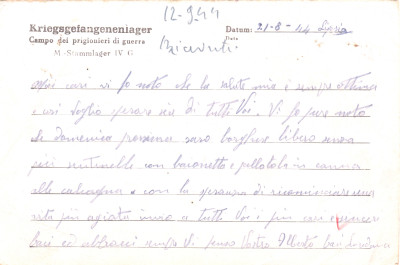 12-9-44
Kriegsgefangenenlager
Campo dei prigionieri di guerra
M.-Stammlager IV G
Datum: 21-8-44 Lipsia
Data
Ricevuta
miei cari vi fo noto che la salute mia è sempre ottima
e così voglio sperare sia di tutti Voi. Vi fo pure noto
che domenica prossima sarò borghese libero senza
più sentinelle con baionetta e pallottola in canna
alle calcagna e con la speranza di ricominciare una
vita più agiata invio a tutti Voi i più cari e sinceri
baci ed abbracci sempre Vi penso Vostro baci